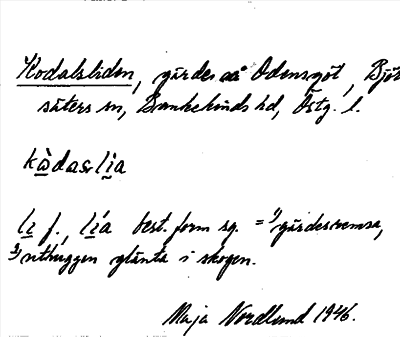 Kodalsliden, gärdes å Odensgöt, Björ
säters sn, Bankekinds hd, Östg. l.
kὰdasr lìa
lι f., lí̱a best. form sg. = 1) gärdesremsa,
2) uthuggen glänta i skogen.
Maja Nordlund 1946.